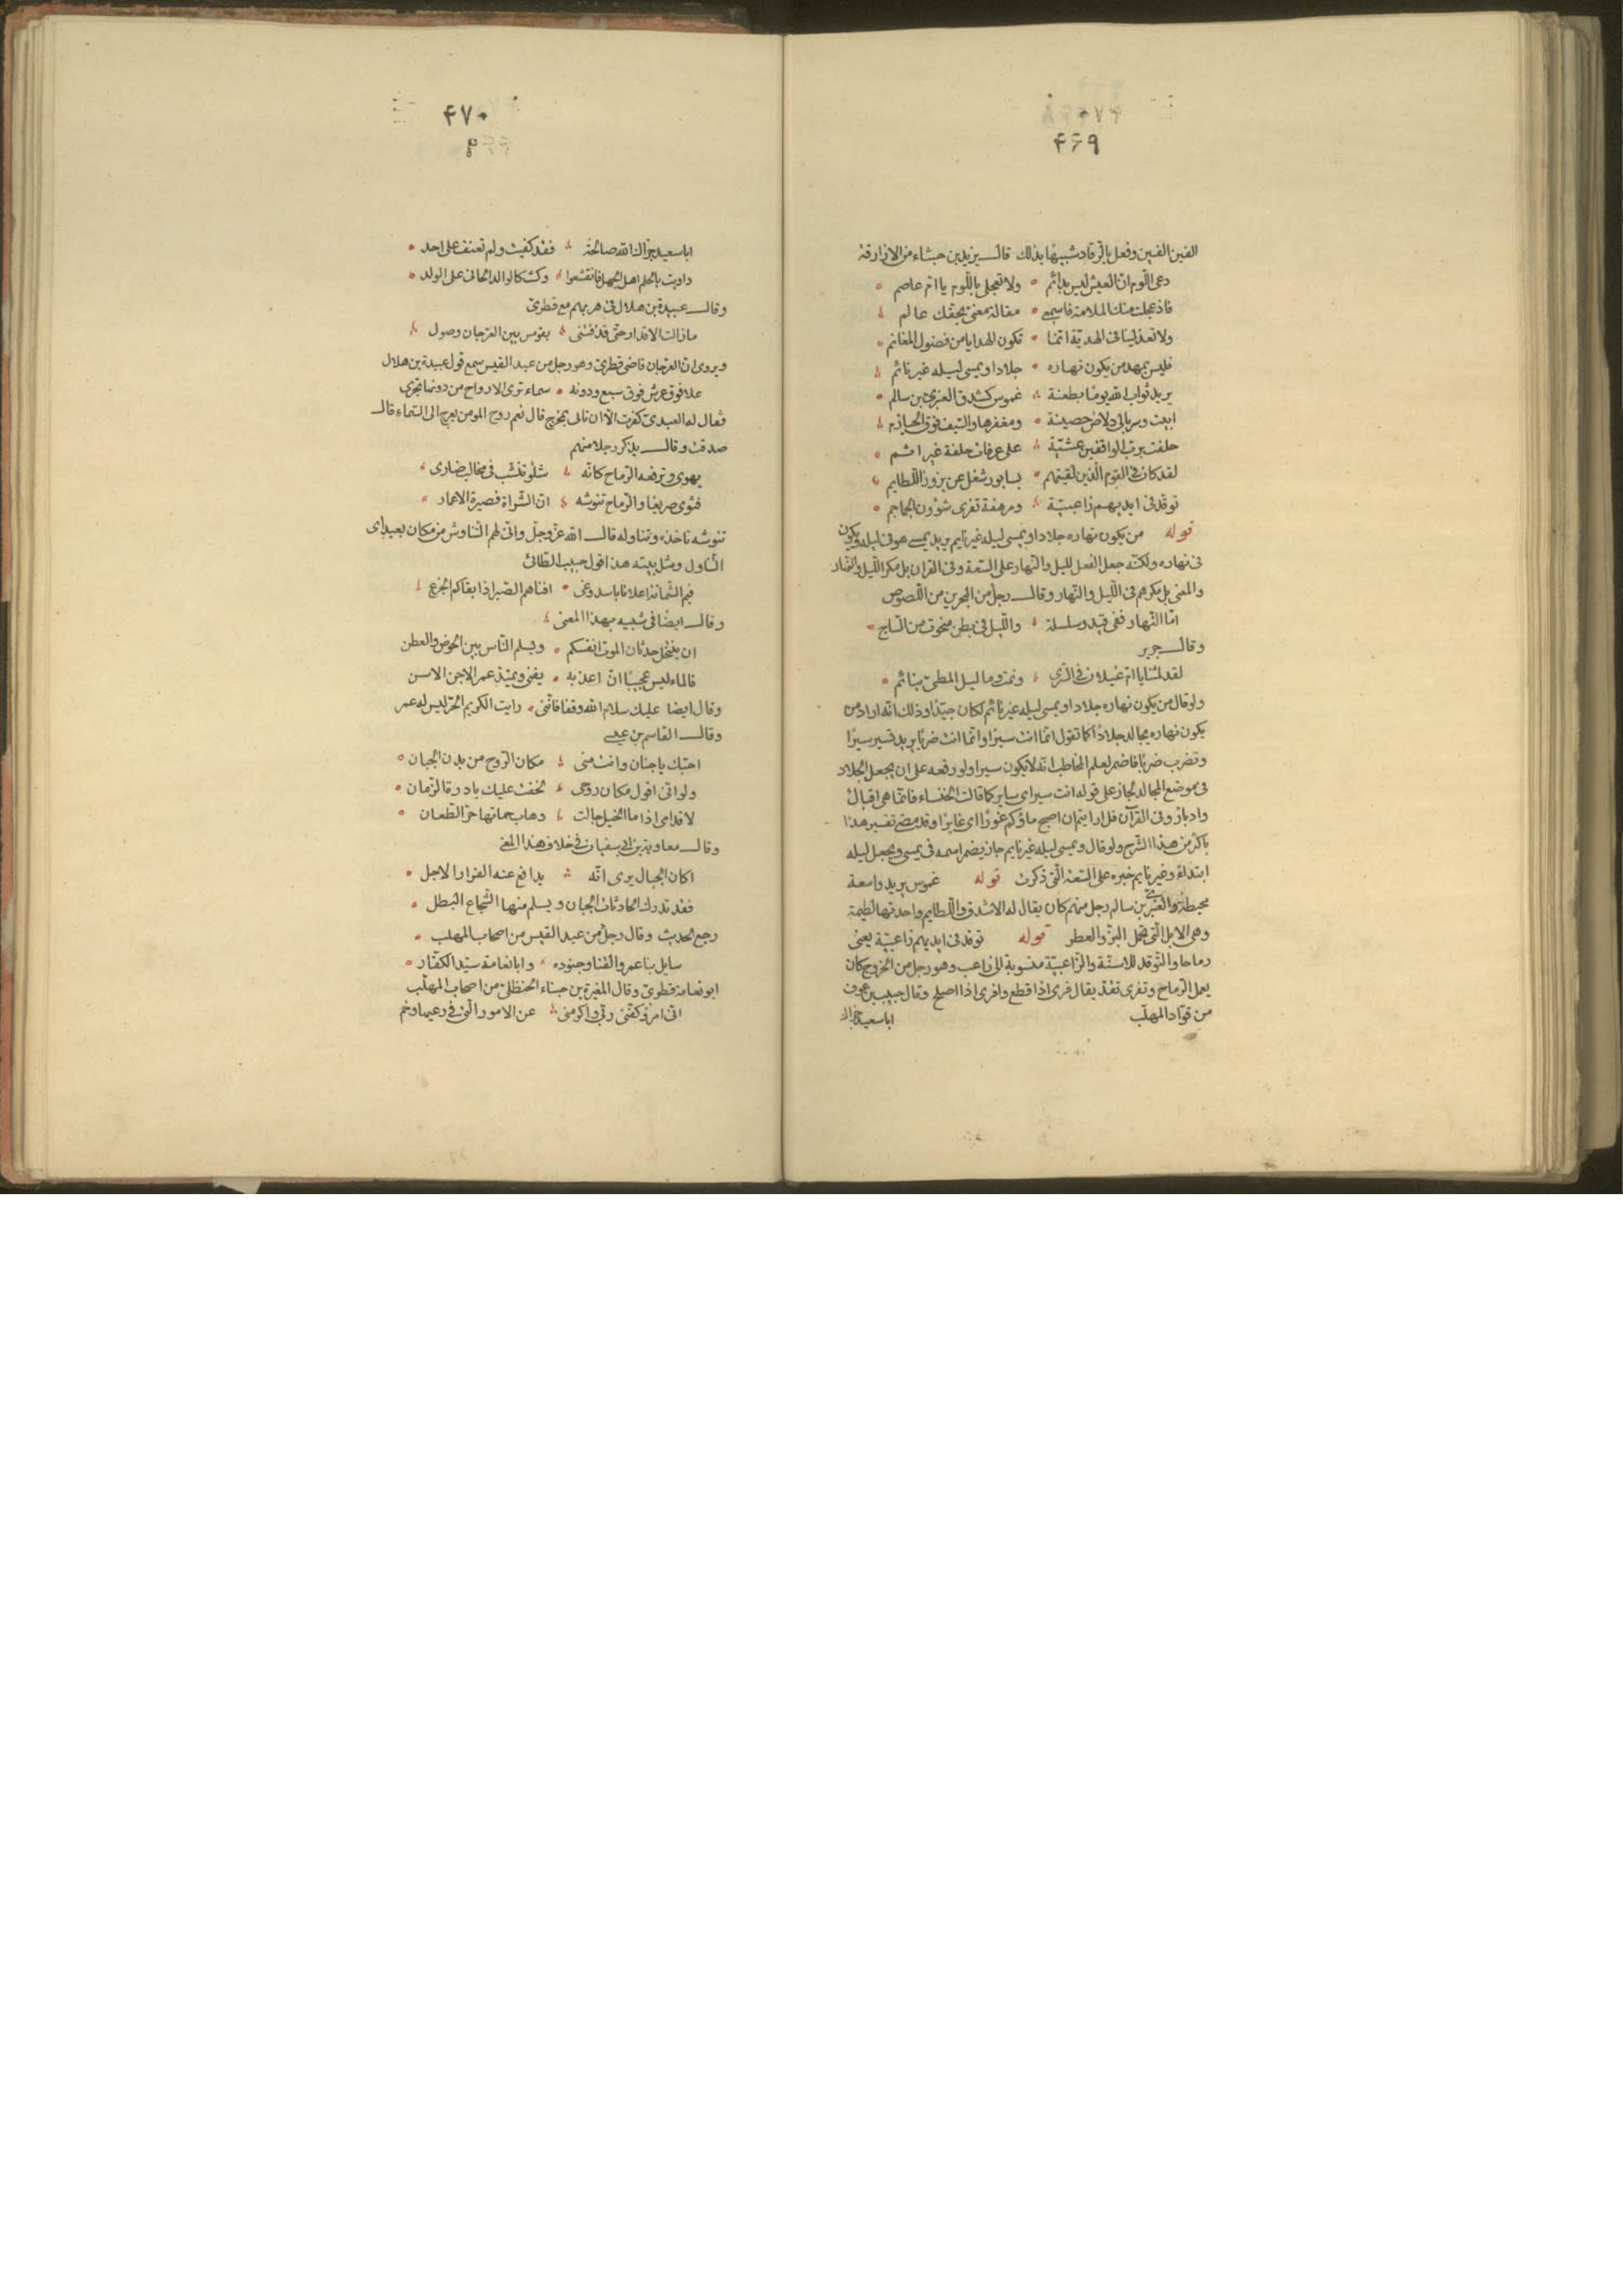 ۴۶۹
الفين الفين وفعل بالرقاد شبيها بذلك قال يزيد بن حبناء من الازارقة
دعى اللوم ان العيش ليس بدائم ولا تعجلى باللوم يا ام عاصم
فاذ عجلت منك الملامة فاسمعى مقالة معنى بحقك عالم
ولا تعذلينا فى الهدية انما تكون الهدايا من فضول المغانم
فليس بمهد من يكون نهاره جلادا ويمسى ليله غير نائم
يريد ثواب الله يوما بطعنة غموس كشدق العنبرى بن سالم
ابيت وسربالى دلاص حصينة ومغفرها والسيف فوق الحيازم
حلفت برب الواقفين عشية على عرفات حلفة غير اثم
لقد كان فى القوم الذين لقيتهم بسابور شغل عن بزوز اللطايم
توقد فى ايديهم زاعبية ومرهفة تفرى شؤون الجماجم
قوله من يكون نهاره جلادا ويمسى ليله غير نايم يريد يمسى هو فى ليله ويكون
فى نهاره ولكنه جعل الفعل لليل والنهار على السعة وفى القران بل مكر الليل والنهار
والمعنى بل مكرهم فى الليل والنهار وقال رجل من البحرين من اللصوص
اما النهار ففى قيد وسلسلة والليل فى بطن منحوت من الساج
وقال جرير
لقد لمتنا يا ام غيلان فى السرى ونمت وما ليل المطى بنائم
ولو قال من يكون نهاره جلادا ويمسى ليله غير نائم لكان جيدا وذلك انه اراد من
يكون نهاره يجالد جلادا كما تقول انما انت سيرا وانما انت ضربا يريد تسير سيرا
وتضرب ضربا فاضمر لعلم المخاطب انه لا يكون سيرا ولو رفعه على ان يجعل الجلاد
فى موضع المجالد لجاز على قوله انت سير اى ساير كما قالت الخنساء فانما هى اقبال
وادبار وفى القرآن قل ارايتم ان اصبح ماؤكم غورا اى غايرا وقد مضى تفسير هذا
باكثر من هذا الشرح ولو قال ويمسى ليله غير نايم جاز يضمر اسمه فى يمسى ويجعل ليله
ابتداء وغير نايم خبره على السعة التى ذكرت قوله غموس يريد واسعة
محيطة والعنبرى بن سالم رجل منهم كان يقال له الاشدق واللطايم واحدتها لطيمة
وهى الابل التى تحمل البز والعطر قوله توقد فى ايديهم زاعبية يعنى
رماحا والتوقد للاسنة والزاعبية منسوبة الى زاعب وهو رجل من الخزرج كان
يعمل الرماح وتفرى تقد يقال فرى اذا قطع وافرى اذا اصلح وقال حبيب بن عوف
من قواد المهلب
ابا سعيد جزاك
۴۷۰
ابا سعيد جزاك الله صالحة فقد كفيت ولم تعنف على احد
داويت بالحلم اهل الجهل فانقشعوا وكنت كالوالد الحانى على الولد
وقال عبيدة بن هلال فى هربهم مع قطرى
ما زالت الاقدار حتى قذفننى بقومس بين الفرجان وصول
ويروى ان الفرجان قاضى قطرى وهو رجل من عبد القيس سمع قول عبيدة بن هلال
علا فوق عرش فوق سبع ودونه سماء ترى الارواح من دونها تجرى
فقال له العبدى كفرت الا ان تاتى بمخرج قال نعم روح المومن يعرج الى السماء قال
صدقت وقال يذكر رجلا منهم
يهوى وترفعه الرماح كانه شلو تنشب فى مخالب ضارى
فثوى صريعا والرماح تنوشه ان الشراة قصيرة الاعمار
تنوشه تاخذه وتتناوله قال الله عز وجل وانى لهم التناوش من مكان بعيد اى
التناول ومثل بيته هذا قول حبيب الطائى
فيم الشماتة اعلانا باسد وغى افناهم الصبر اذ ابقاكم الجزع
وقال ايضا فى شبيه بهذا المعنى
ان ينتخل حدثان الموت انفسكم ويسلم الناس بين الحوض والعطن
فالماء ليس عجيبا ان اعذبه يفنى ويمتد عمر الاجن الاسن
وقال ايضا عليك سلام الله وقفا فاننى رايت الكريم الحر ليس له عمر
وقال القاسم بن عيسى
احبك يا جنان وانت منى مكان الروح من بدن الجبان
ولو انى اقول مكان روحى لخفت عليك بادرة الزمان
لاقدامى اذا ما الخيل جالت وهاب حماتها حر الطعان
وقال معاوية بن ابى سفيان فى خلاف هذا المعنى
اكان الجبال يرى انه يدافع عنه الفرار الاجل
فقد تدرك الحادثات الجبان ويسلم منها الشجاع البطل
رجع الحديث وقال رجل من عبد القيس من اصحاب المهلب
سايل بنا عمرو القنا وجنوده وابا نعامة سيد الكفار
ابو نعامة قطرى وقال المغيرة بن حبناء الحنظلى من اصحاب المهلب
انى امرؤ كفنى ربى واكرمنى عن الامور التى فى رعيها وخم